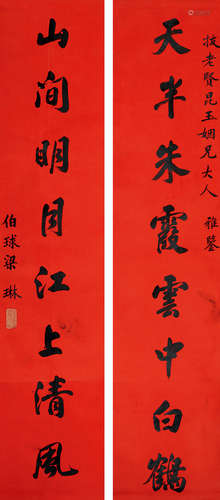 技老賢昆玉姻兄大人 雅鑒
天半朱霞雲中白鶴
山間明月江上清風
伯球梁琳